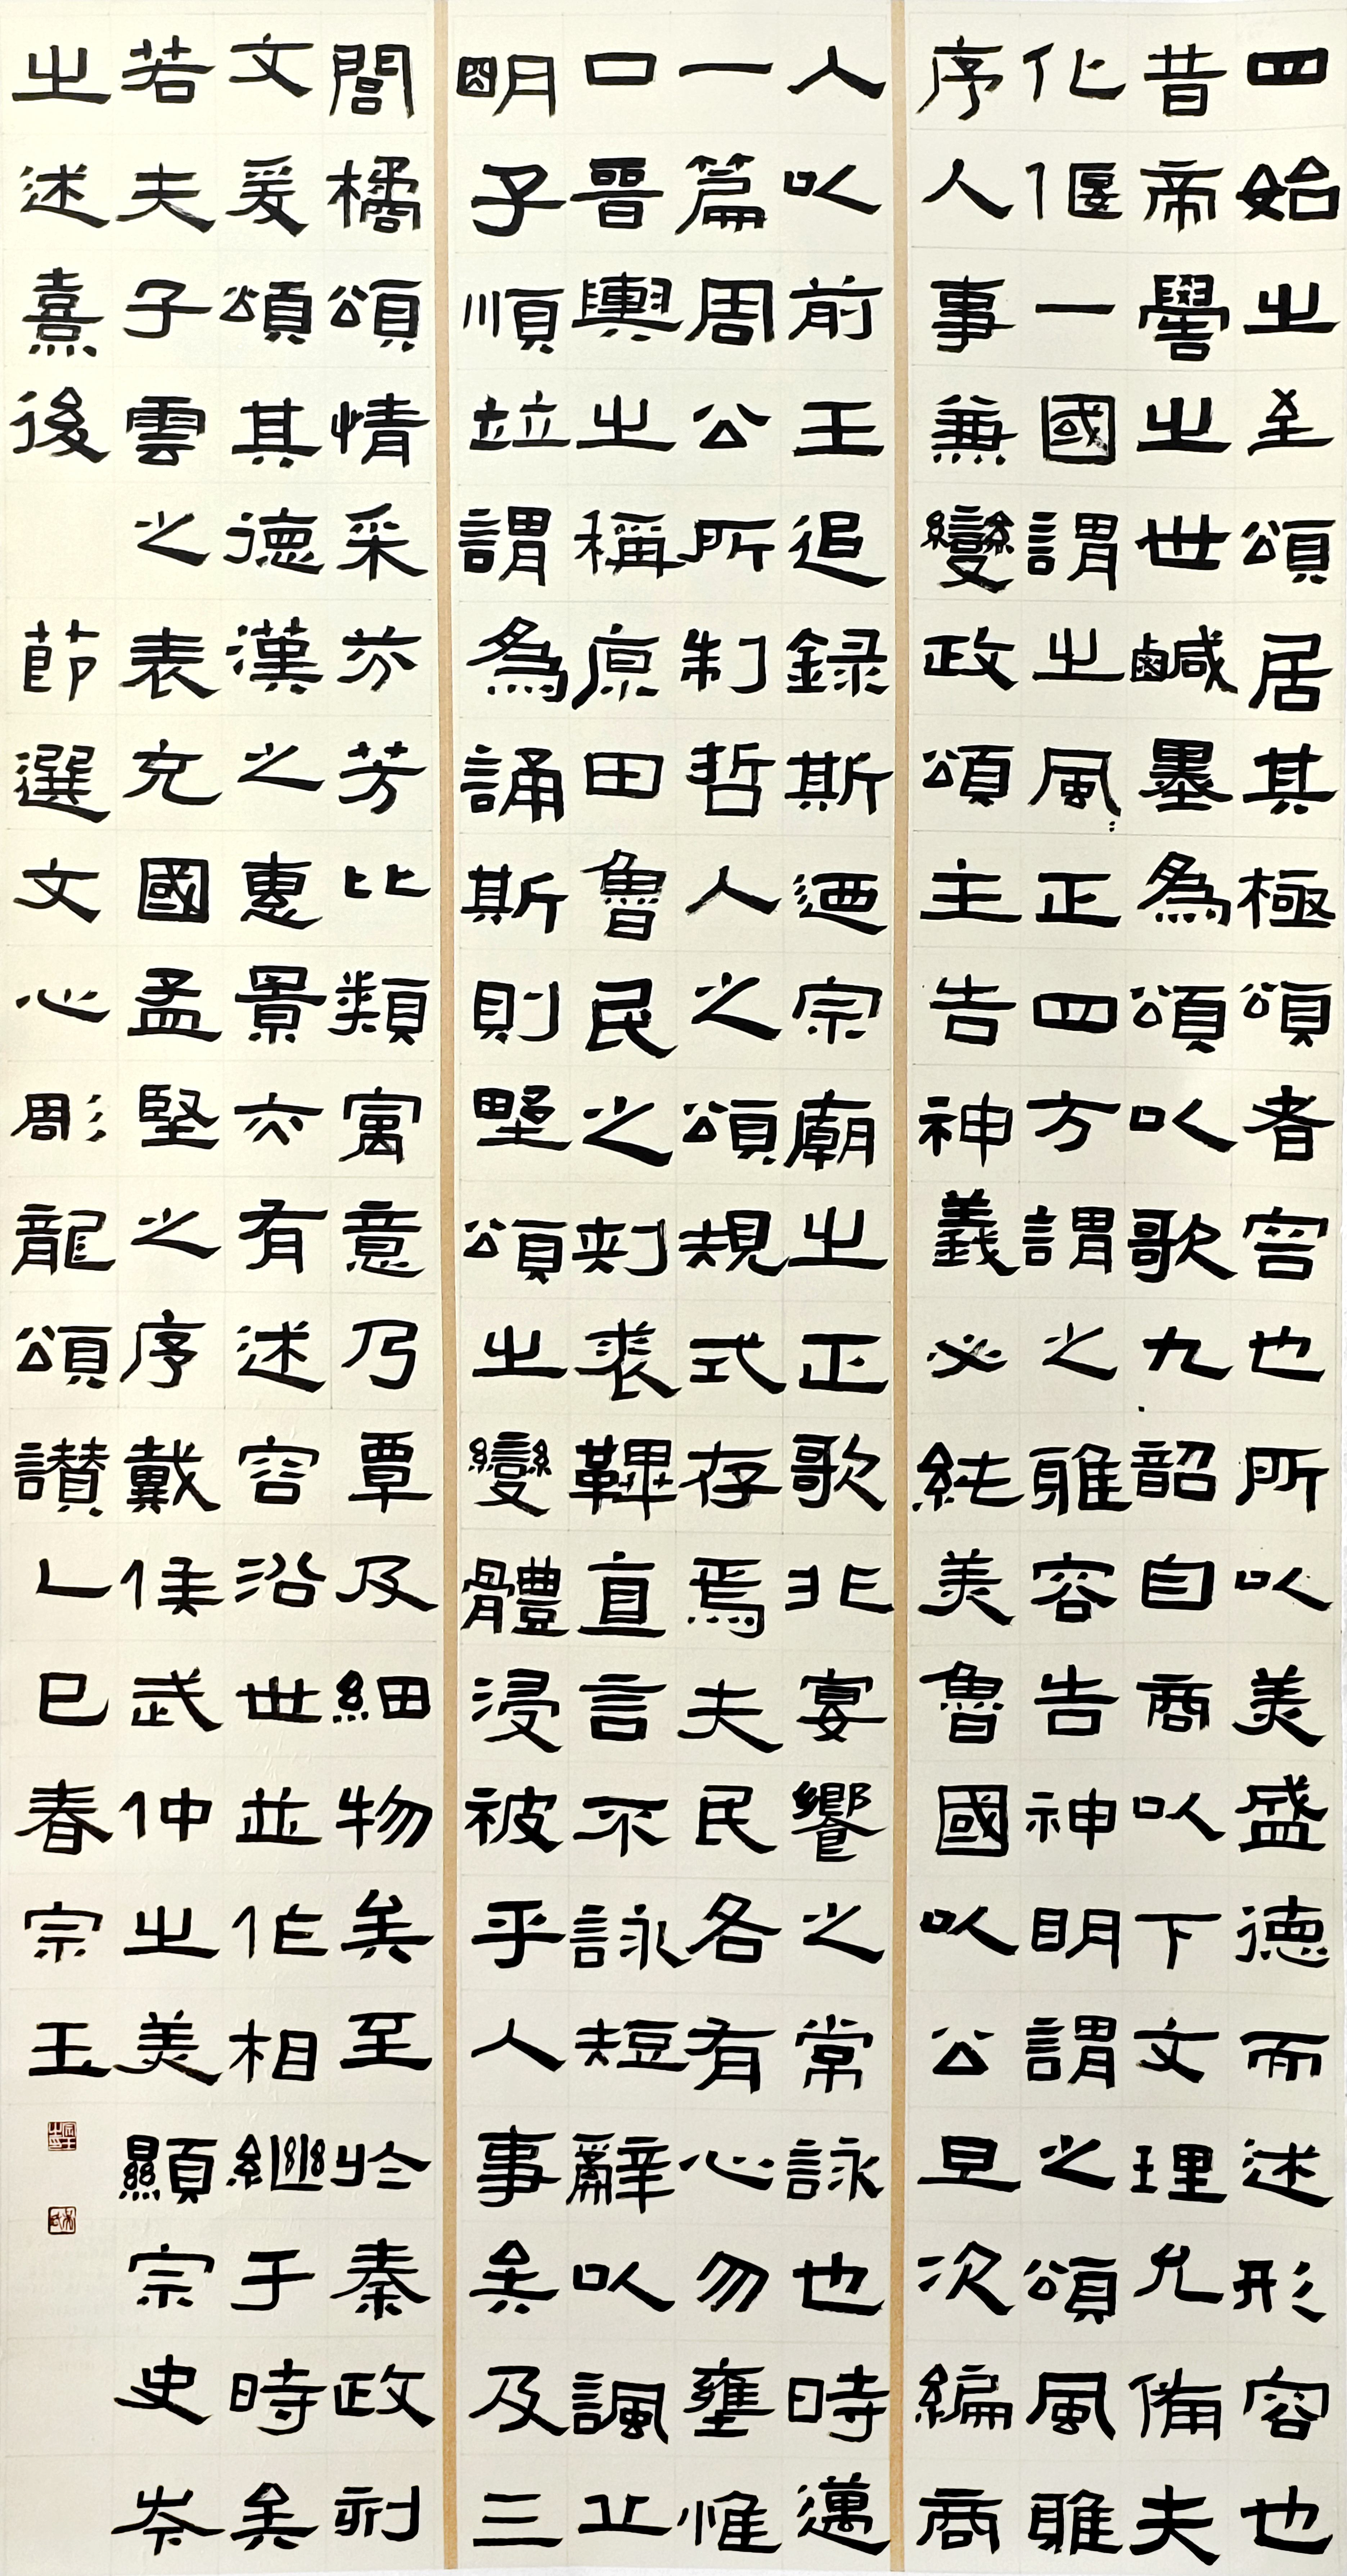 四始之至頌居其極頌者容也所以美盛德而述形容也
昔帝嚳之世鹹墨為頌以歌九韶自商以下文理允備夫
化偃一國謂之風〻正四方謂之雅容告神明謂之頌風雅
序人事兼變政頌主告神義必純美魯國以公旦次編商
人以前王追録斯迺宗廟之正歌非宴饗之常詠也時邁
一篇周公所制哲人之頌規式存焉夫民各有心勿壅惟
口晉輿之稱原田魯民之刺裘鞸直言不詠短辭以諷丘
明子順竝謂為誦斯則野頌之變體浸被乎人事矣及三
閭橘頌情采芬芳比類寓意乃覃及細物矣至於秦政刻
文爰頌其德漢之惠景亦有述容沿世並作相繼于時矣
若夫子雲之表充國孟堅之序戴侯武仲之美顯宗史岑
之述熹後 節選文心彫龍頌讃乙巳春宗玉